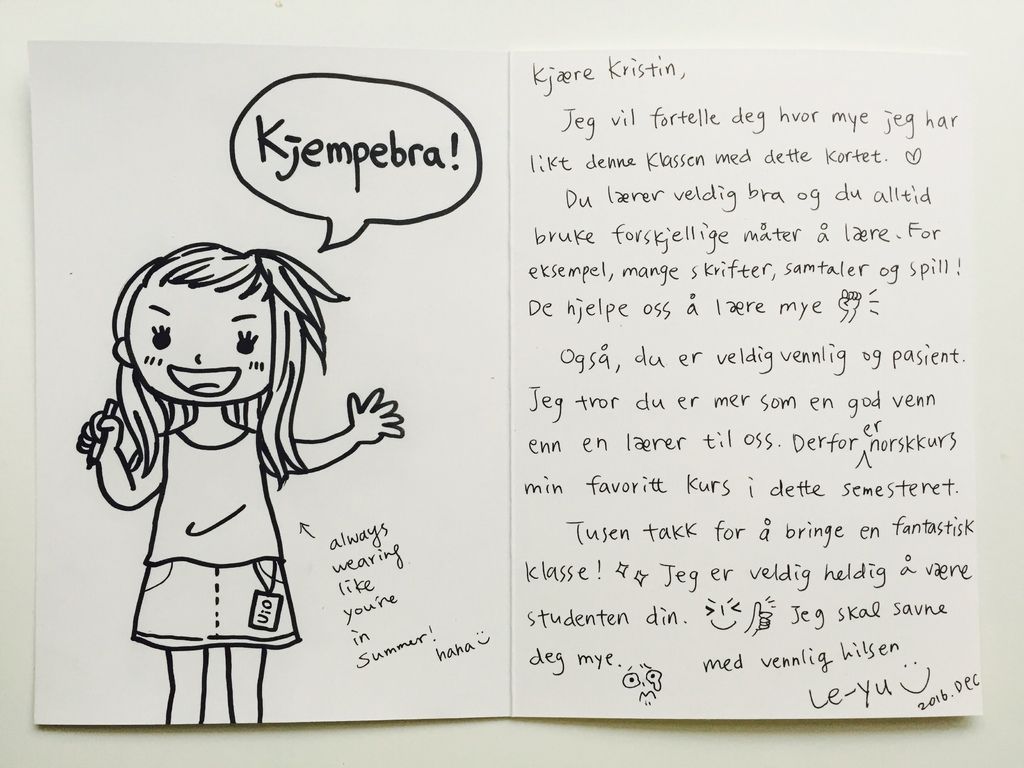 Kjempebra!
always
wearing
like
you're
in
summer!
haha
UiO
Kjære Kristin,
Jeg vil fortelle deg hvor mye jeg har
likt denne klassen med dette kortet. ♡
Du lærer veldig bra og du alltid
bruke forskjellige måter å lære. For
eksempel, mange skrifter, samtaler og spill!
De hjelpe oss å lære mye
Også, du er veldig vennlig og pasient.
Jeg tror du er mer som en god venn
enn en lærer til oss. Derfor er norskkurs
min favoritt kurs i dette semesteret.
Tusen takk for å bringe en fantastisk
klasse! Jeg er veldig heldig å være
studenten din. Jeg skal savne
deg mye. med vennlig hilsen
Le-Yu
2016. Dec